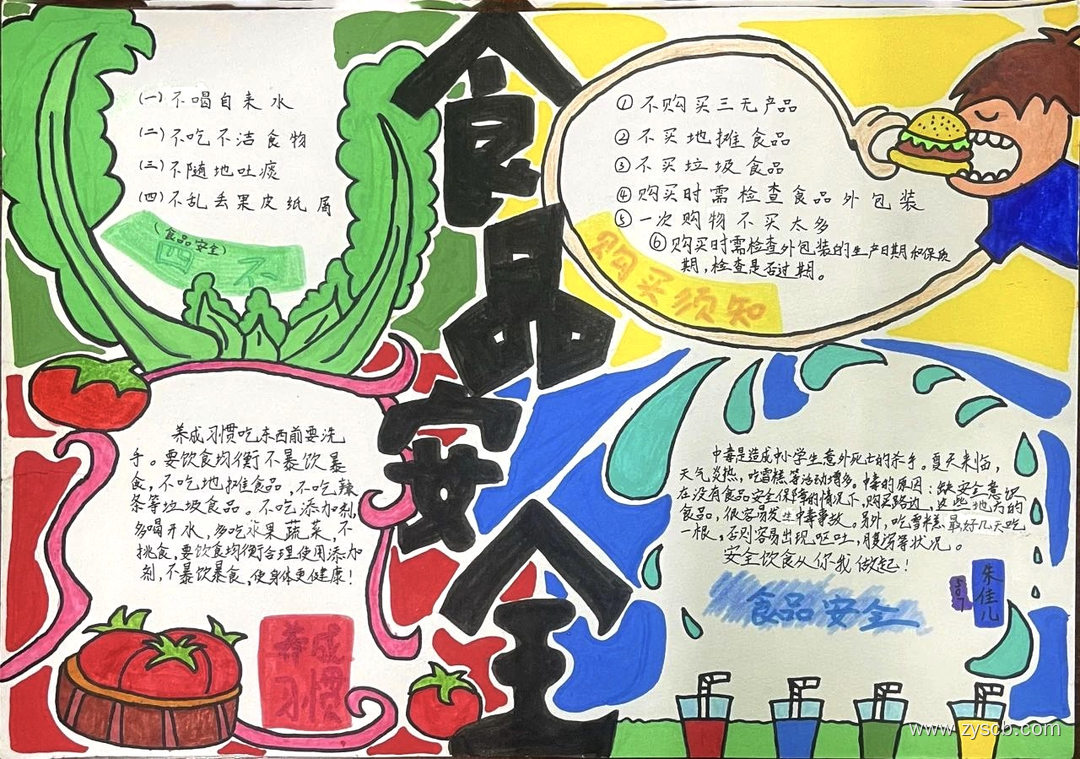 食品安全
(一)不喝自来水
(二)不吃不洁食物
(三)不随地吐痰
(四)不乱丢果皮纸屑
(食品安全)
四不
①不购买三无产品
②不买地摊食品
③不买垃圾食品
④购买时需检查食品外包装
⑤一次购物不买太多
⑥购买时需检查外包装的生产日期和保质
期,检查是否过期。
购买须知
养成习惯吃东西前要洗
手。要饮食均衡不暴饮暴
食,不吃地摊食品,不吃辣
条等垃圾食品。不吃添加剂,
多喝开水,多吃水果蔬菜,不
挑食,要饮食均衡合理使用添加
剂,不暴饮暴食,使身体更健康!
养成
习惯
中毒是造成中小学生意外死亡的杀手。夏天来临,
天气炎热,吃雪糕等活动增多。中毒的原因:缺安全意识
在没有食品安全保障的情况下,购买路边,这些地方的
食品,很容易发生中毒事故。另外,吃雪糕最好几天吃
一根,否则容易出现呕吐,腹泻等状况。
安全饮食从你我做起!
食品安全
507
朱佳儿
www.zyscb.com